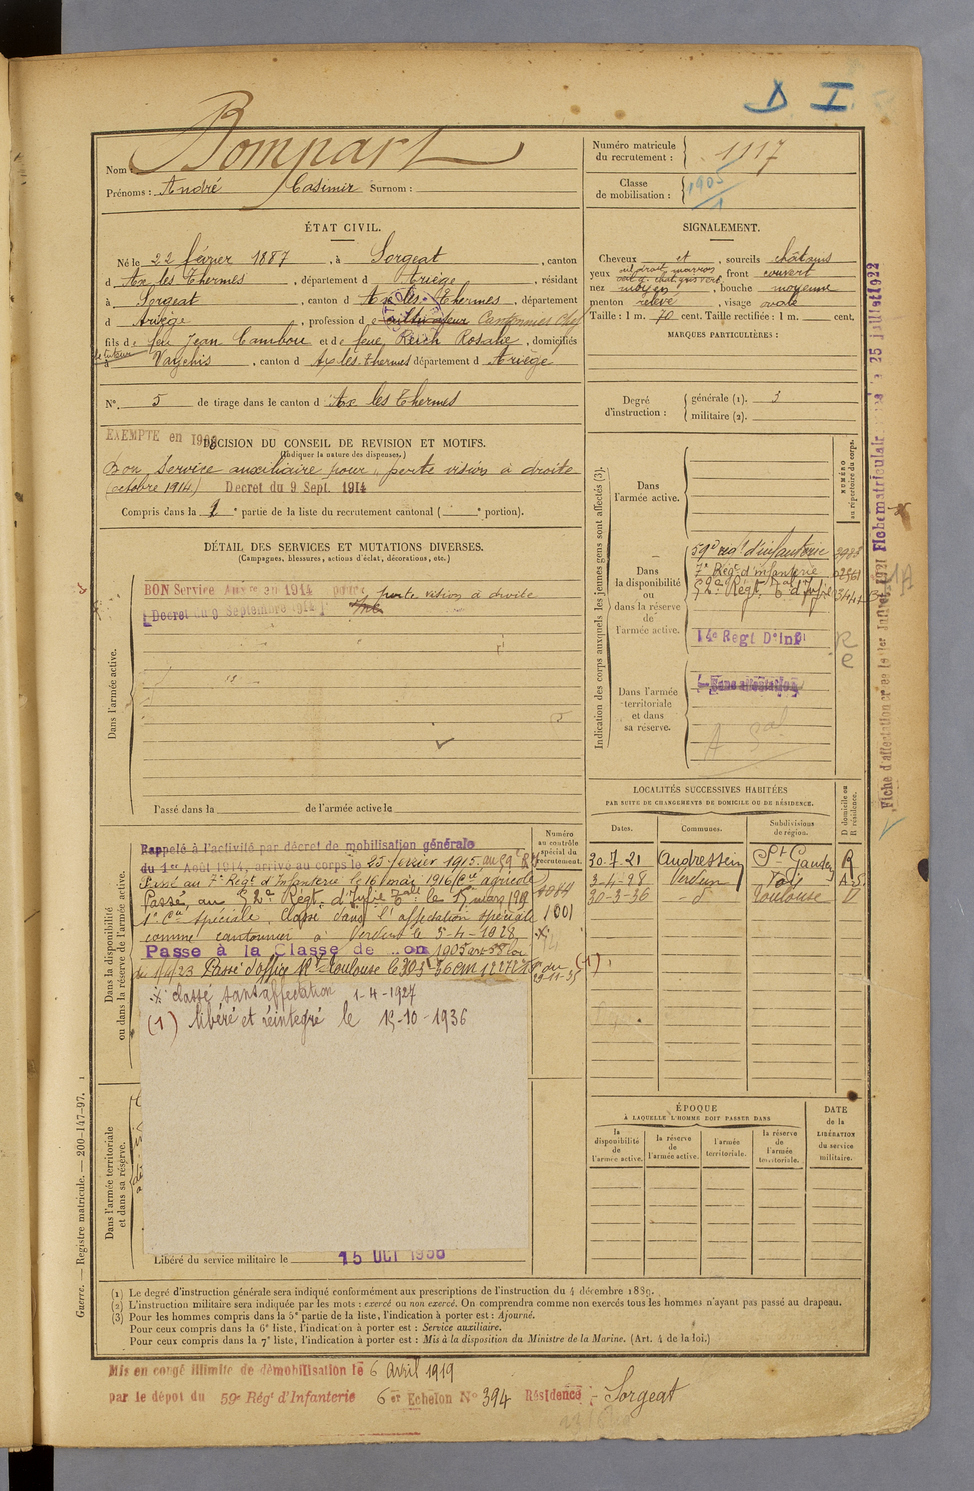 D I
Nom : Bompart
Prénoms : André Casimir Surnom :
Numéro matricule du recrutement : 1117
Classe de mobilisation : 1905
ÉTAT CIVIL.
Né le 22 février 1887, à Sorgeat, canton
d'Ax les Thermes, département d Ariège, résidant
à Sorgeat, canton d'Ax les Thermes, département
d Ariège, profession de cultivateur Cantonnier
fils de feu Jean Cambou et de feue Reich Rosalie, domiciliés
à Vaychis, canton d'Ax les Thermes département d Ariège
N° 5 de tirage dans le canton d'Ax les Thermes
SIGNALEMENT.
Cheveux et, sourcils châtains
yeux œil droit marron, front couvert
nez moyen, bouche moyenne
menton relevé, visage ovale
Taille : 1 m. 70 cent. Taille rectifiée : 1 m. cent.
MARQUES PARTICULIÈRES :
Degré d'instruction : générale (1). 3
militaire (2).
EXEMPTE en 1908
DÉCISION DU CONSEIL DE REVISION ET MOTIFS.
(Indiquer la nature des dispenses.)
Bon Service auxiliaire pour "perte vision à droite
(octobre 1914) Decret du 9 Sept. 1914
Compris dans la 1e partie de la liste du recrutement cantonal ( e portion).
DÉTAIL DES SERVICES ET MUTATIONS DIVERSES.
(Campagnes, blessures, actions d'éclat, décorations, etc.)
Dans l'armée active.
BON Service Auxre en 1914 pour: perte vision à droite
Decret du 9 Septembre 1914
Passé dans la de l'armée active le
Indication des corps auxquels les jeunes gens sont affectés (3).
NUMÉRO au répertoire du corps.
Dans l'armée active.
Dans la disponibilité ou dans la réserve de l'armée active.
59e régt d'infanterie
7e Régt d'infanterie
14e Regt D'Infie
Dans l'armée territoriale et dans sa réserve.
Sans affectation
Dans la disponibilité ou dans la réserve de l'armée active.
Numéro au contrôle spécial du recrutement.
Rappelé à l'activité par décret de mobilisation générale
du 1er Août 1914, arrivé au corps le 25 février 1915. au 59e RI
Passé au 7e Régt d'Infanterie le 16 mai 1916 (Cie agricole
1e Cie spéciale, Classé dans l'affectation spéciale
comme cantonnier à Verdun le 5-4-1928,
Passé à la Classe de 1905
1001
✕ classé sans affectation 1-4-1927
(1) libéré et réintégré le 13-10-1936
Dans l'armée territoriale et dans sa réserve.
Libéré du service militaire le 15 OCT 1936
LOCALITÉS SUCCESSIVES HABITÉES
PAR SUITE DE CHANGEMENTS DE DOMICILE OU DE RÉSIDENCE.
Dates. Communes. Subdivisions de région. D domicile ou R résidence.
30-7-21 Audressein St Gaudens R
3-4-28 Verdun Foix
30-3-36 - d° Toulouse D
ÉPOQUE
À LAQUELLE L'HOMME DOIT PASSER DANS
la disponibilité de l'armée active. la réserve de l'armée active. l'armée territoriale. la réserve de l'armée territoriale.
DATE de la LIBÉRATION du service militaire.
(1) Le degré d'instruction générale sera indiqué conformément aux prescriptions de l'instruction du 4 décembre 1889.
(2) L'instruction militaire sera indiquée par les mots : exercé ou non exercé. On comprendra comme non exercés tous les hommes n'ayant pas passé au drapeau.
(3) Pour les hommes compris dans la 5e partie de la liste, l'indication à porter est : Ajourné.
Pour ceux compris dans la 6e liste, l'indication à porter est : Service auxiliaire.
Pour ceux compris dans la 7e liste, l'indication à porter est : Mis à la disposition du Ministre de la Marine. (Art. 4 de la loi.)
Mis en congé illimité de démobilisation le 6 Avril 1919
par le dépot du 59e Régt d'Infanterie 6er Echelon N° 394 Résidence :- Sorgeat
Guerre. — Registre matricule. — 200-147-97.
Fiche matriculair 25 juillet 1922
Fiche d'affectation